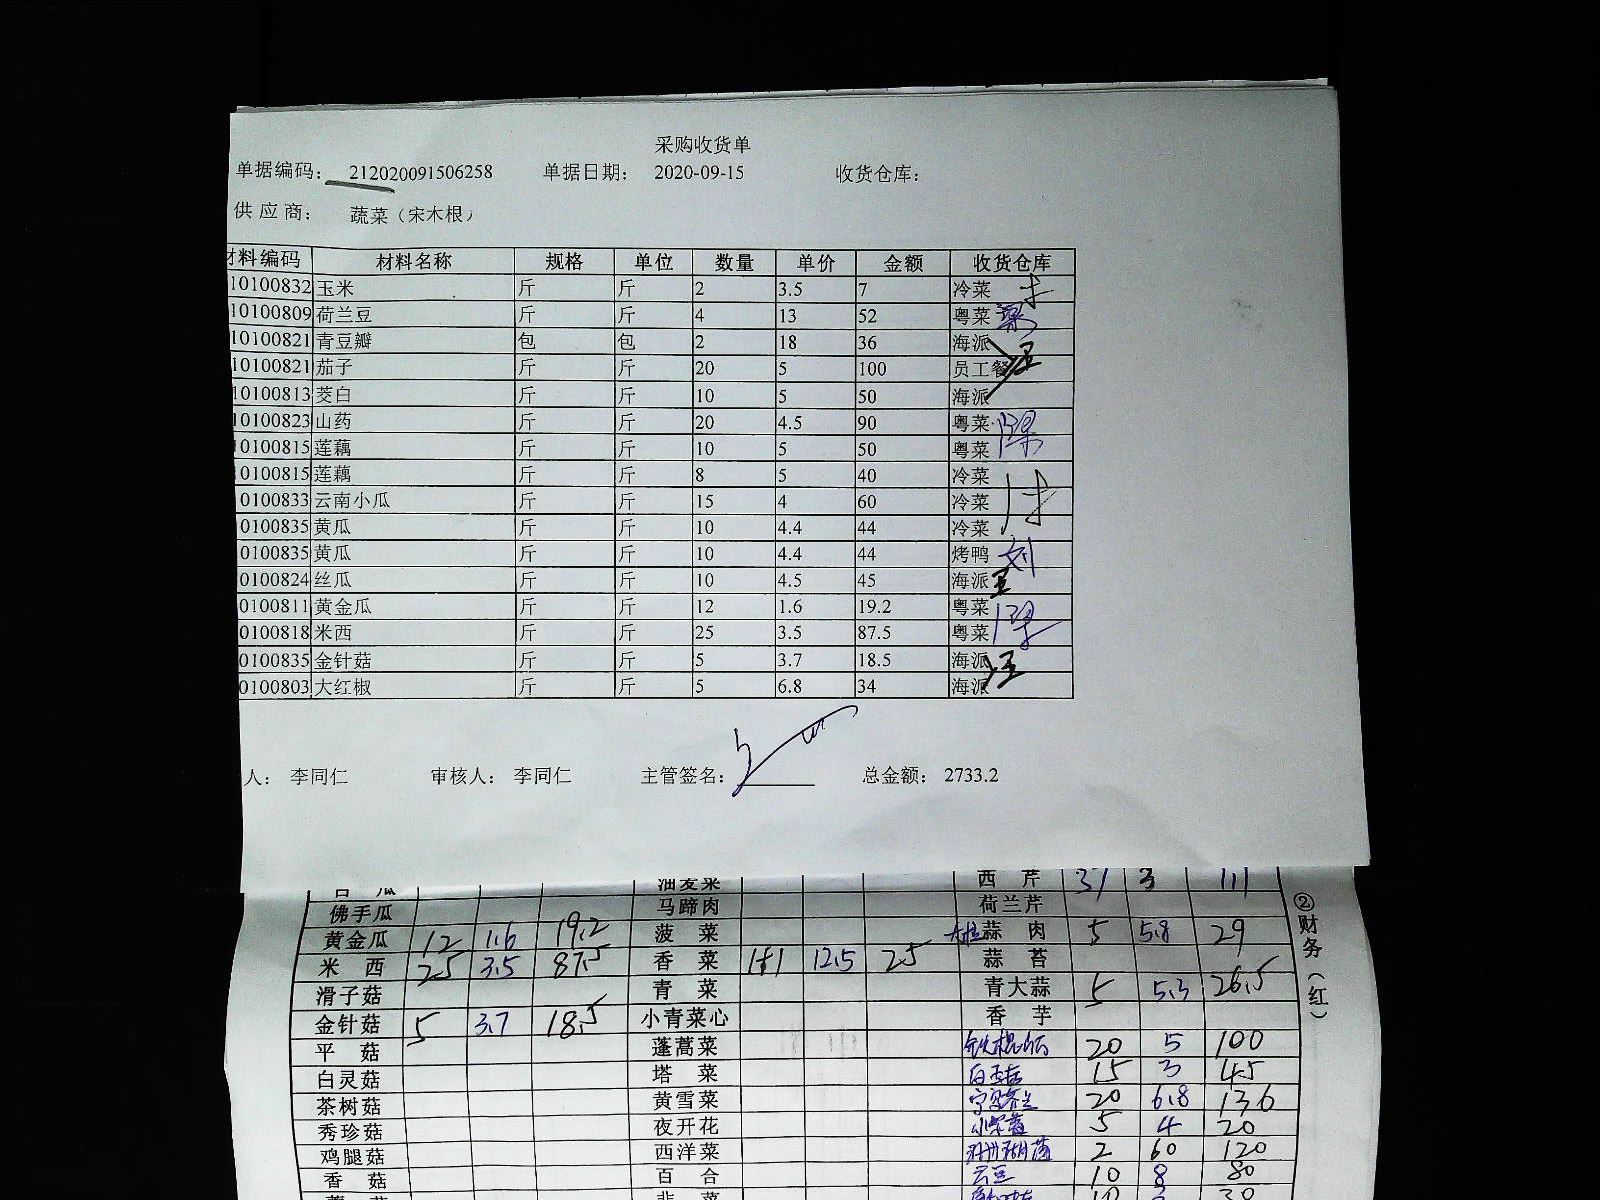 采购收货单
单据编码： 212020091506258 单据日期： 2020-09-15 收货仓库：
供应商： 蔬菜（宋木根）
材料编码 材料名称 规格 单位 数量 单价 金额 收货仓库
10100832 玉米 斤 斤 2 3.5 7 冷菜
10100809 荷兰豆 斤 斤 4 13 52 粤菜
10100821 青豆瓣 包 包 2 18 36 海派
10100821 茄子 斤 斤 20 5 100 员工餐
10100813 茭白 斤 斤 10 5 50 海派
10100823 山药 斤 斤 20 4.5 90 粤菜
10100815 莲藕 斤 斤 10 5 50 粤菜
0100815 莲藕 斤 斤 8 5 40 冷菜
0100833 云南小瓜 斤 斤 15 4 60 冷菜
0100835 黄瓜 斤 斤 10 4.4 44 冷菜
0100835 黄瓜 斤 斤 10 4.4 44 烤鸭 刘
0100824 丝瓜 斤 斤 10 4.5 45 海派 王
0100811 黄金瓜 斤 斤 12 1.6 19.2 粤菜
0100818 米西 斤 斤 25 3.5 87.5 粤菜
0100835 金针菇 斤 斤 5 3.7 18.5 海派
0100803 大红椒 斤 斤 5 6.8 34 海派
人： 李同仁 审核人： 李同仁 主管签名： 总金额： 2733.2
油麦菜 西芹 37 3 111
佛手瓜 马蹄肉 荷兰芹
黄金瓜 12 1.6 19.2 菠菜 蒜肉 5 5.8 29
米西 25 3.5 87.5 香菜 1+1 12.5 25 蒜苔
滑子菇 青菜 青大蒜 5 5.3 26.5
金针菇 5 3.7 18.5 小青菜心 香芋
平菇 蓬蒿菜 20 5 100
白灵菇 塔菜 15 3 45
茶树菇 黄雪菜 20 6.8 136
秀珍菇 夜开花 5 4 20
鸡腿菇 西洋菜 2 60 120
香菇 百合 云豆 10 8 80
②财务（红）